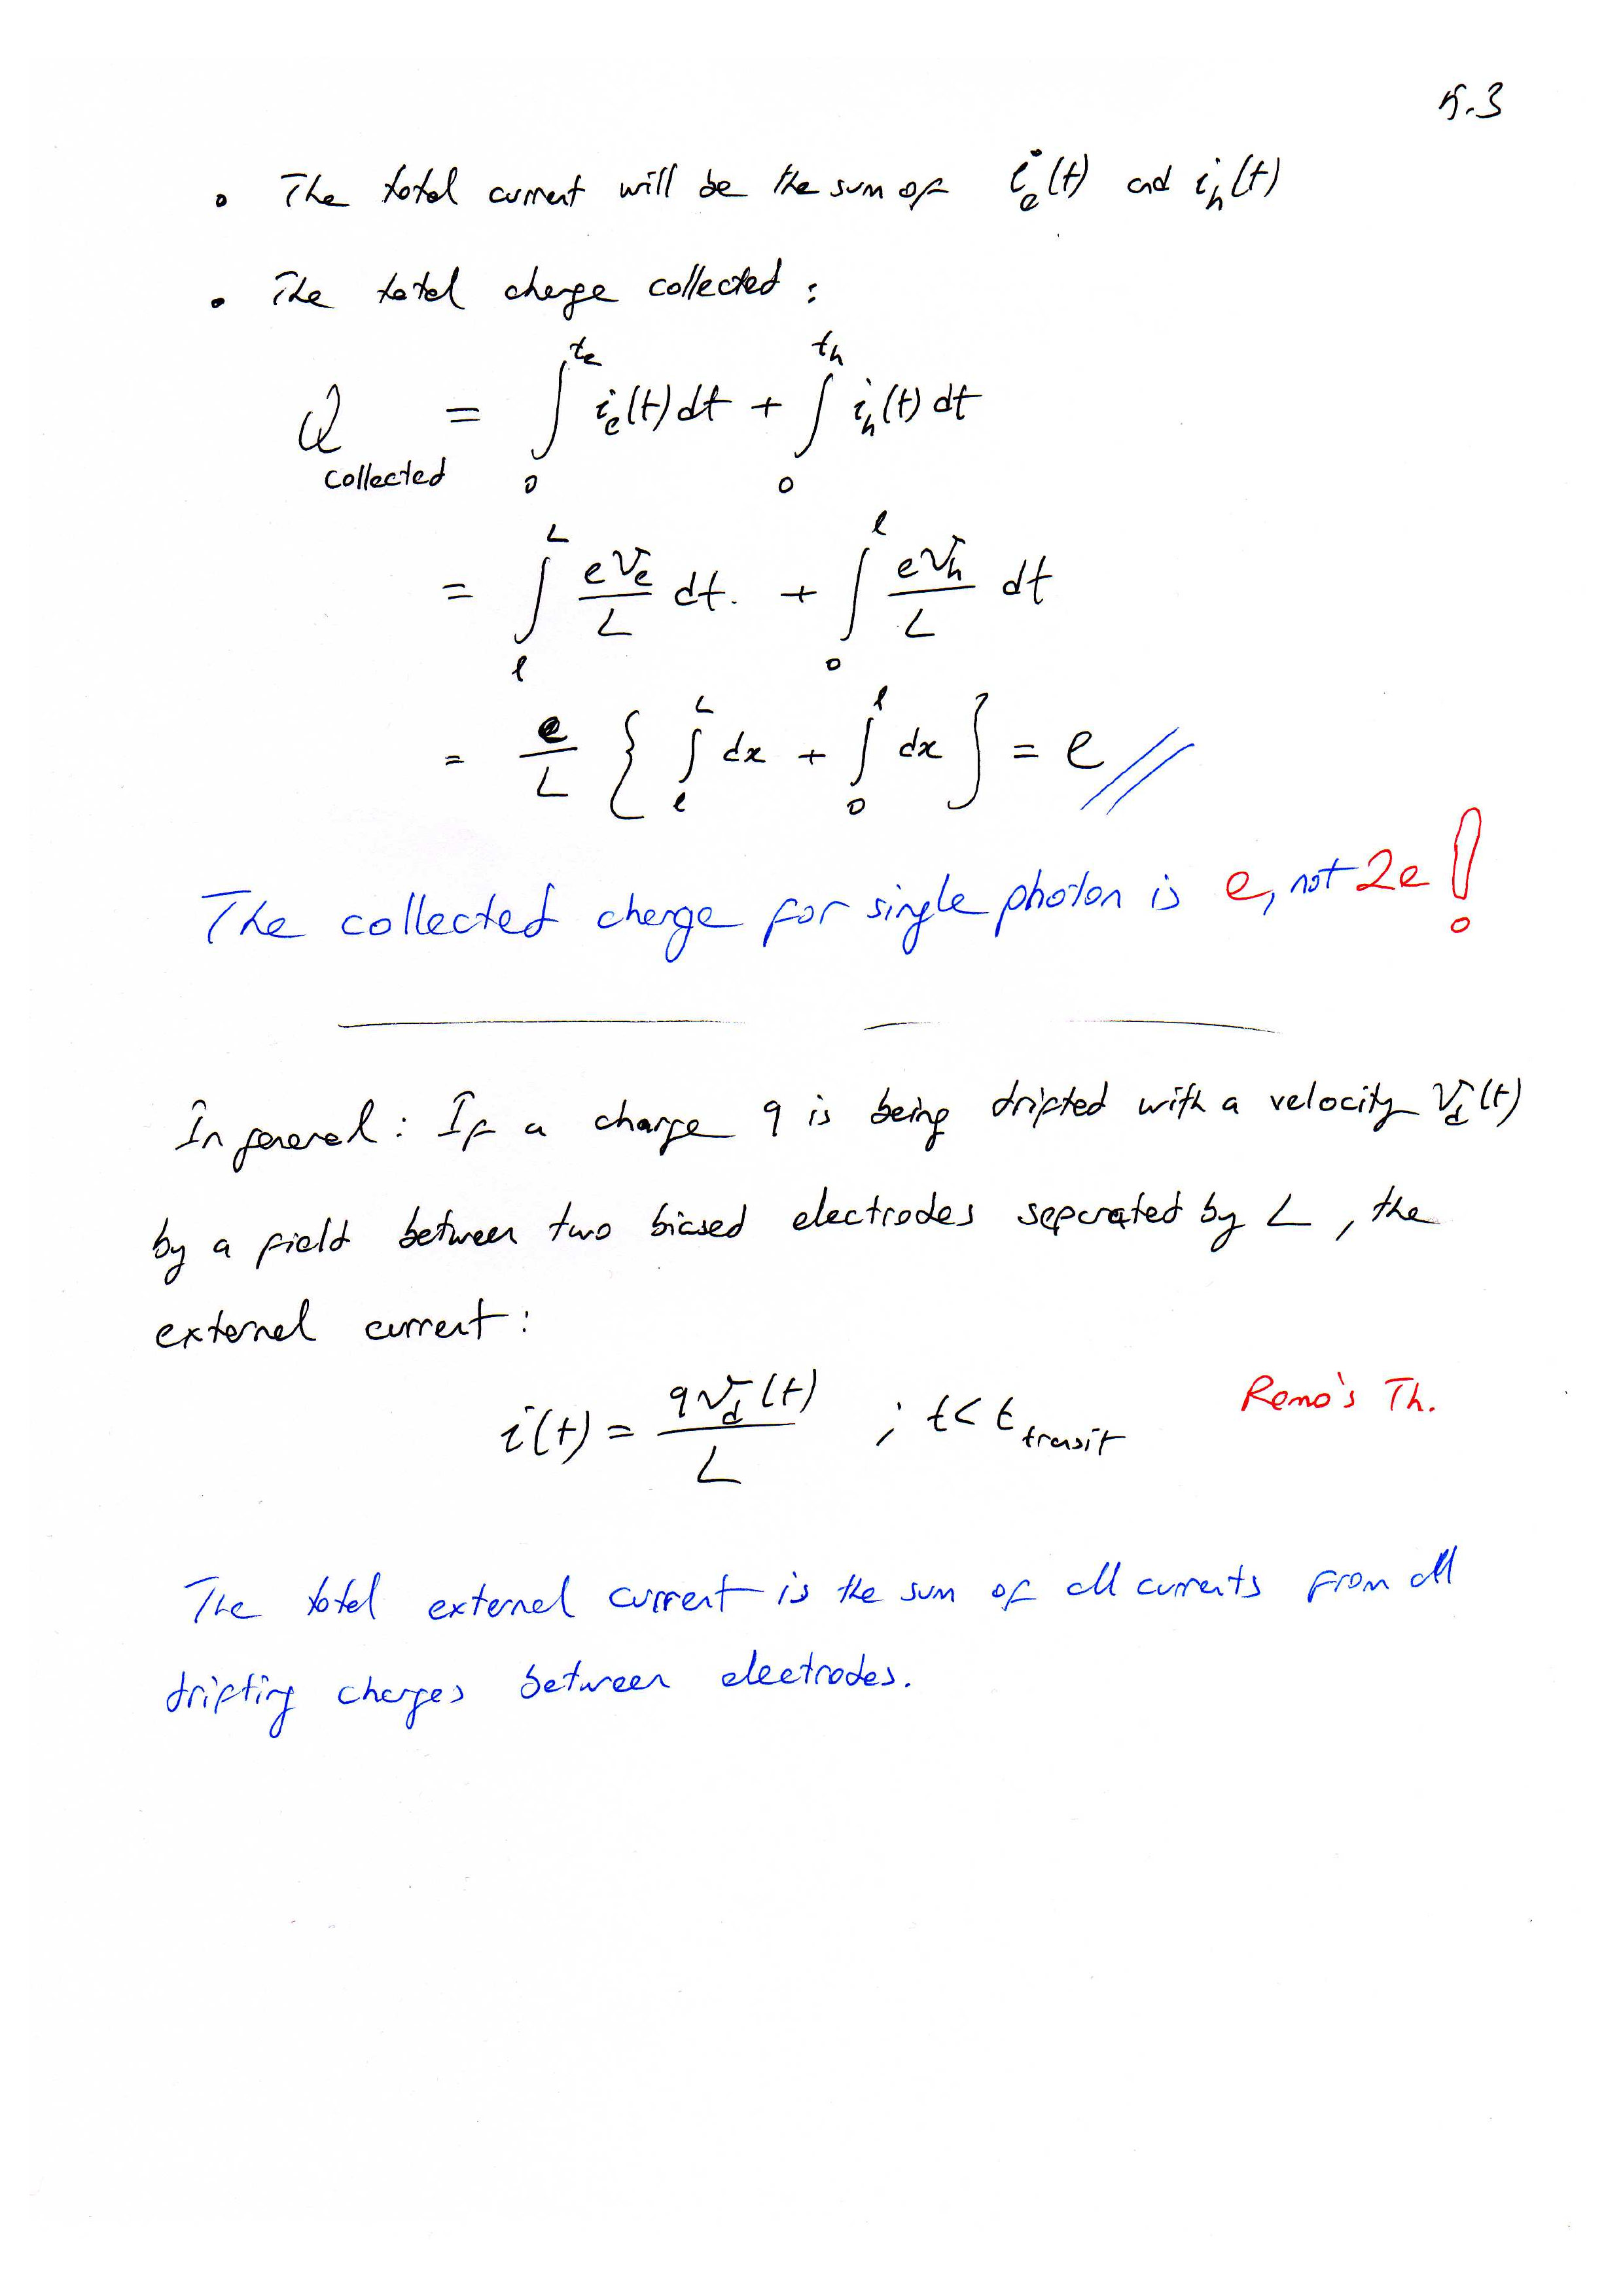 5.3
• The total current will be the sum of i_e(t) and i_h(t)
• The total charge collected :
Q_collected = ∫_0^{t_e} i_e(t) dt + ∫_0^{t_h} i_h(t) dt
= ∫_l^L eV_e/L dt. + ∫_0^l eV_h/L dt
= e/L { ∫_l^L dx + ∫_0^l dx } = e //
The collected charge for single photon is e, not 2e !
In general : If a charge q is being drifted with a velocity V_d(t)
by a field between two biased electrodes separated by L , the
external current :
i(t) = qV_d(t)/L ; t < t_transit Remo's Th.
The total external current is the sum of all currents from all
drifting charges between electrodes.